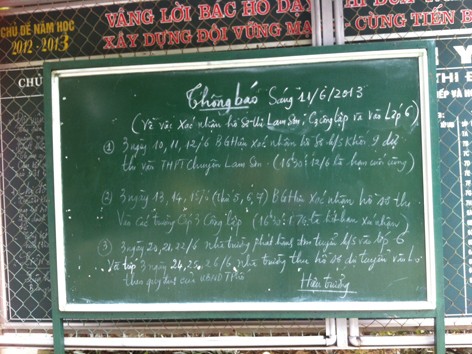 CHỦ ĐỀ NĂM HỌC
2012-2013
VÂNG LỜI BÁC HỒ DẠ
XÂY DỰNG ĐỘI VỮNG MẠ
CÙNG TIẾN B
CHỦ
THI
ẾP VÀ HỌ
Thông báo Sáng 11/6/2013
(Về việc xác nhận hồ sơ thi Lam Sơn, Công lập và vào Lớp 6)
① 3 ngày 10, 11, 12/6 BGHiệu xác nhận hồ sơ h/s khối 9 dự
thi vào THPT chuyên Lam Sơn. (16h30: 12/6 là hạn cuối cùng)
② 3 ngày 13, 14, 15/6 (thứ 5, 6, 7) BGHiệu xác nhận hồ sơ thi
Vào các trường Cấp 3 Công lập (16h30:
③ 3 ngày 20, 21, 22/6 nhà trường phát hàng đơn tuyển h/s vào lớp 6
Và tiếp 3 ngày 24, 25, 26/6, nhà trường thu hồ sơ dự tuyển vào lớp
theo quy định của UBND TPhố
Hiệu trưởng